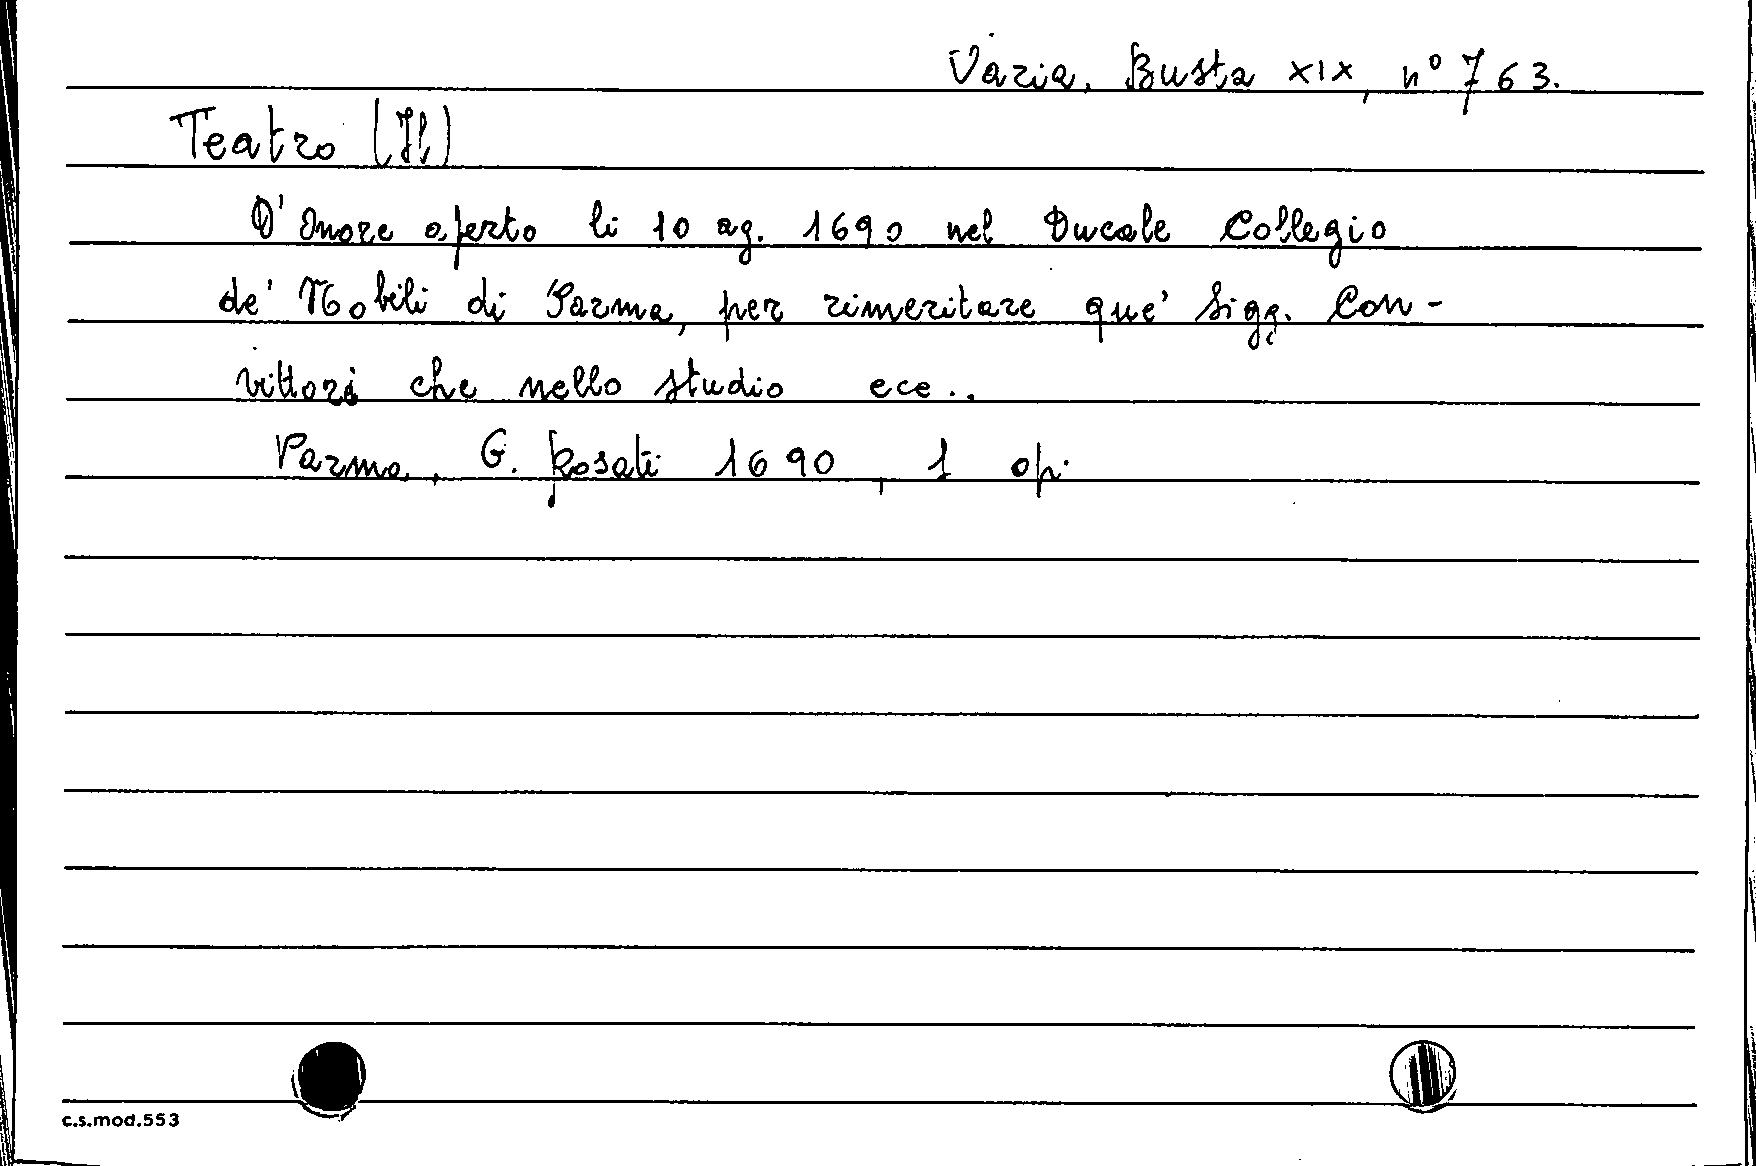 Varia, Busta XIX, n° 763.
Teatro (Il)
D'Onore aperto li 10 ag. 1690 nel Ducale Collegio
de' Nobili di Parma, per rimeritare que' Sigg. Con-
vittori che nello studio ecc..
Parma, G. Rosati 1690, 1 op.
c.s.mod.553